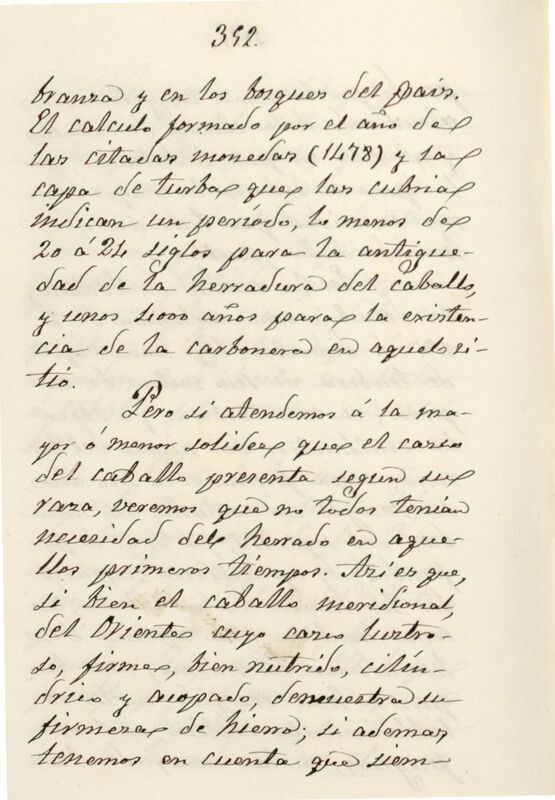 352.
branza y en los bosques del pais.
El calculo formado por el año de
las citadas monedas (1478) y la
capa de turba que las cubria
indican un período, lo menos de
20 á 24 siglos para la antigue-
dad de la herradura del caballo,
y unos 4000 años para la existen-
cia de la carbonera en aquel si-
tio.
Pero si atendemos á la ma-
yor ó menor solidez que el casco
del caballo presenta segun su
raza, veremos que no todos tenian
necesidad del herrado en aque-
llos primeros tiempos. Asi es que,
si bien el caballo meridional,
del Oriente cuyo casco lustro-
so, firme, bien nutrido, cilín-
drico y acopado, demuestra su
firmeza de hierro; si ademas
tenemos en cuenta que siem-